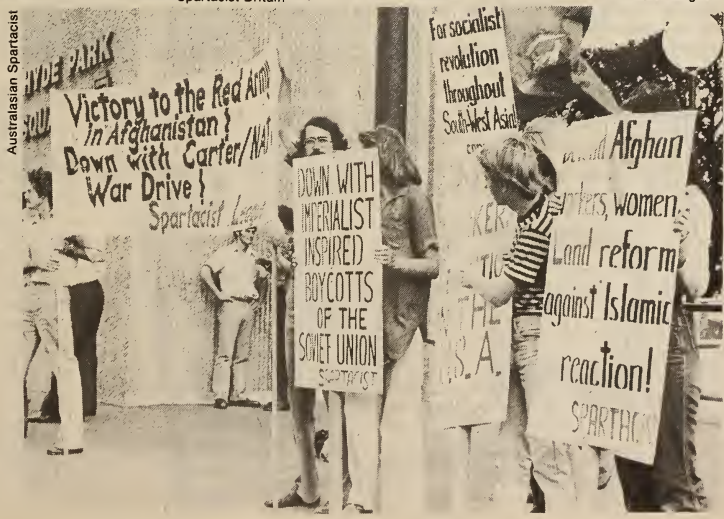 Spartacist Britain
Australasian Spartacist
HYDE PARK
Victory to the Red Army
in Afghanistan!
Down with Carter/NATO
War Drive!
Spartacist League
DOWN WITH
IMPERIALIST
INSPIRED
BOYCOTTS
OF THE
SOVIET UNION
SPARTACIST
For socialist
revolution
throughout
South-West Asia!
KER
TIO
THE
.S.A.
Afghan
workers, women,
Land reform
against Islamic
reaction!
SPARTACIS